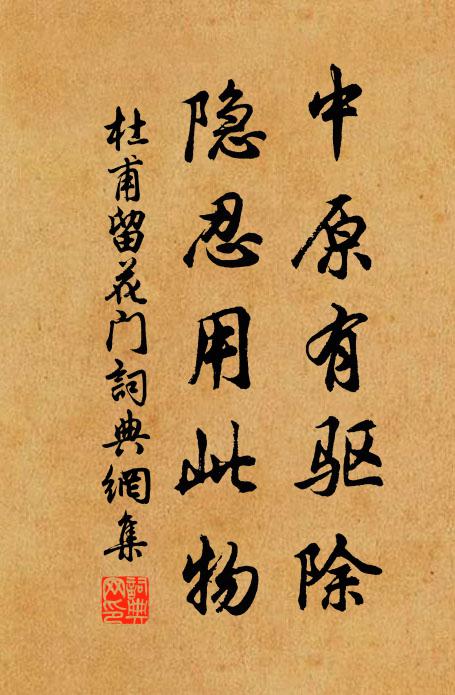 中原有驱除
隐忍用此物
杜甫留花门詞典網集
詞典网印